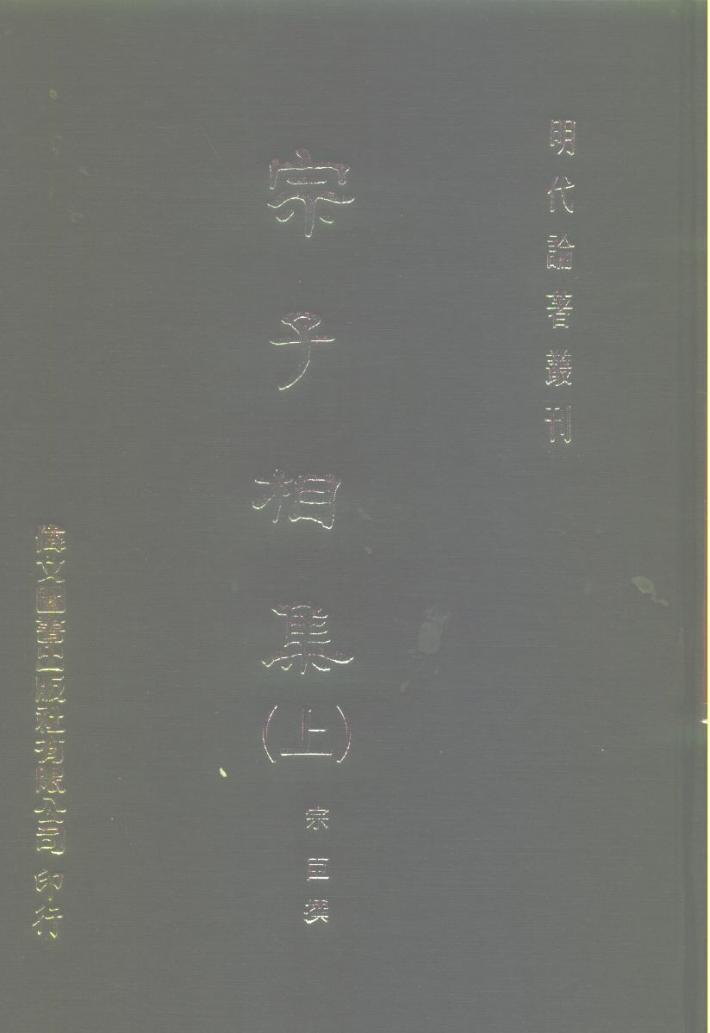 明代論著叢刊
宗子相集(上)
宗臣撰
偉文圖書出版社有限公司 印行